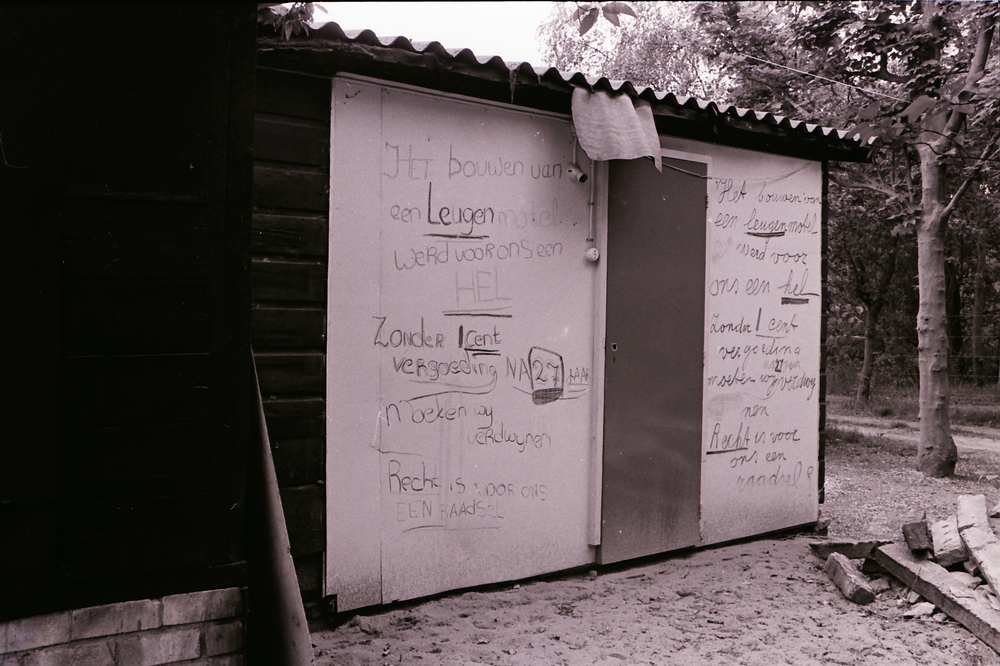 HET bouwen van
een Leugen motel
werd voor ons een
HEL
Zonder 1 cent
vergoeding NA 27 JAAR
moeten wij
verdwynen
Recht is voor ons
EEN RAADSEL
Het bouwen van
een leugenmotel
werd voor
ons een hel
Zonder 1 cent
vergoeding
moeten wij verdwij
nen
Recht is voor
ons een
raadsel